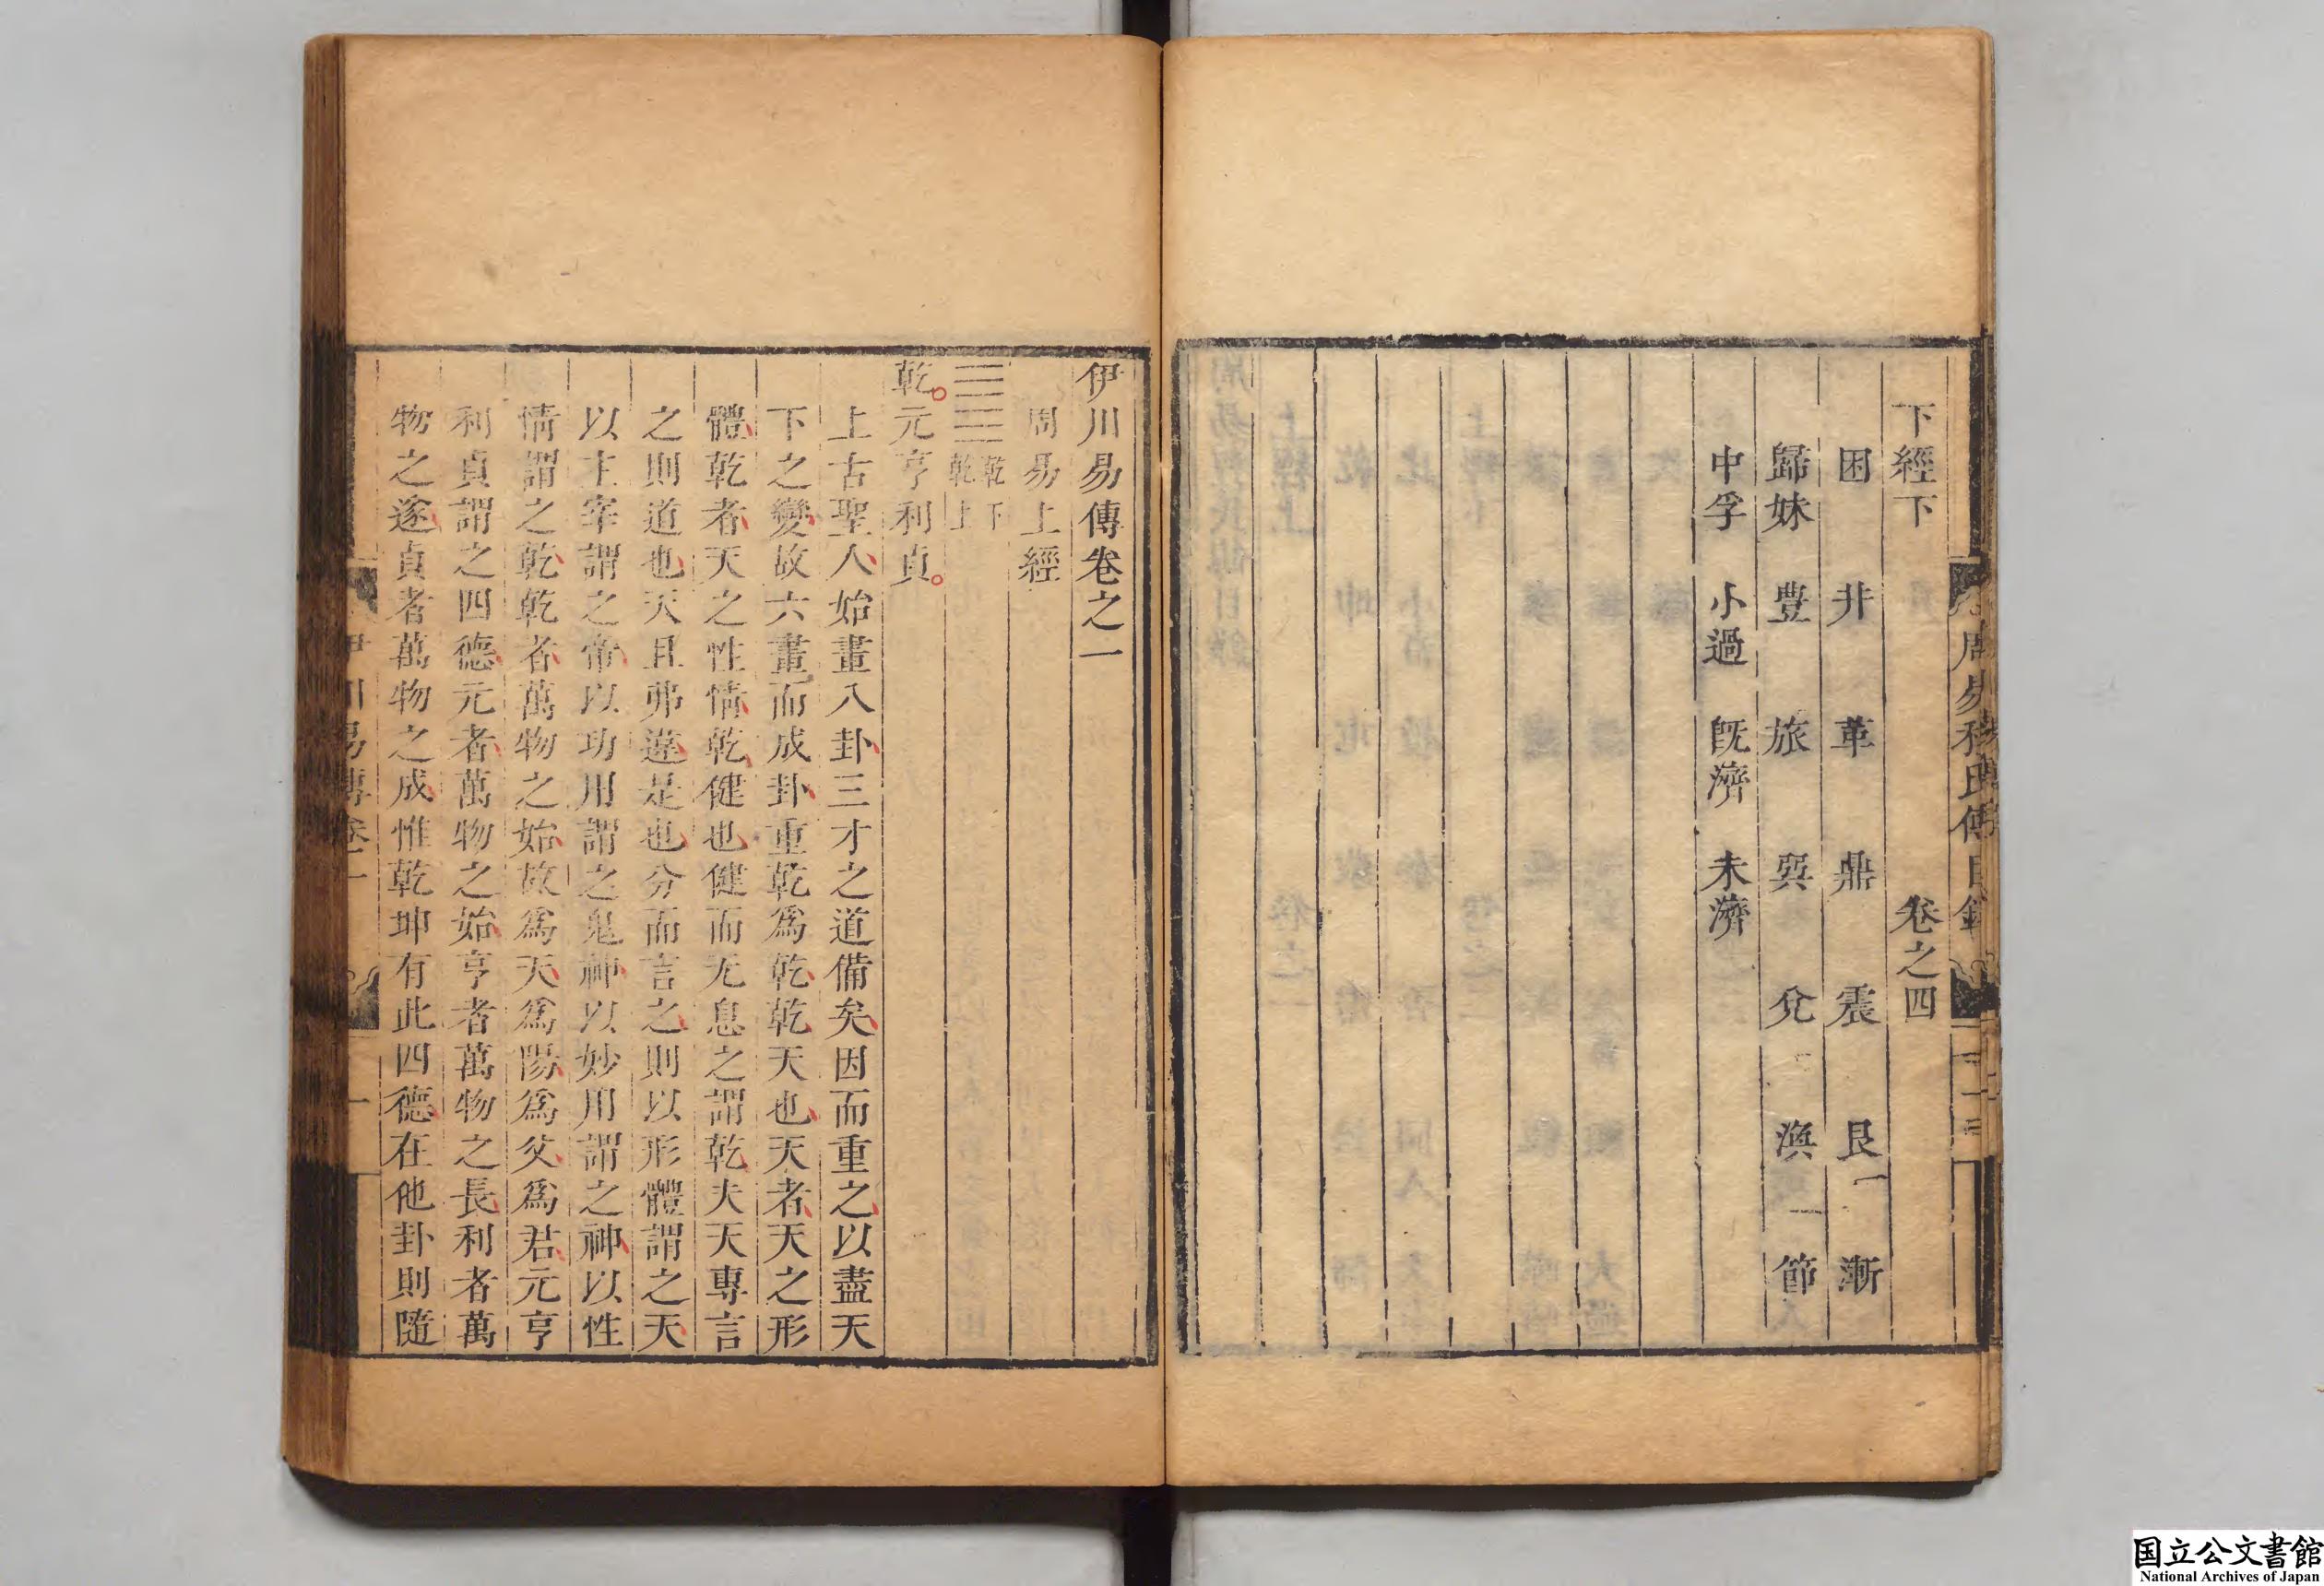 周易程氏傳目錄
下經下 卷之四
困 井 革 鼎 震 艮 漸
歸妹 豊 旅 巽 兌 渙 節
中孚 小過 旣濟 未濟
伊川易傳卷之一
周易上經
乾下
乾上
乾元亨利貞
上古聖人始畫八卦三才之道備矣因而重之以盡天
下之變故六畫而成卦重乾爲乾乾天也天者天之形
體乾者天之性情乾健也健而无息之謂乾夫天專言
之則道也天且弗違是也分而言之則以形體謂之天
以主宰謂之帝以功用謂之鬼神以妙用謂之神以性
情謂之乾乾者萬物之始故爲天爲陽爲父爲君元亨
利貞謂之四德元者萬物之始亨者萬物之長利者萬
物之遂貞者萬物之成惟乾坤有此四德在他卦則隨
伊川易傳卷一
一
国立公文書館
National Archives of Japan